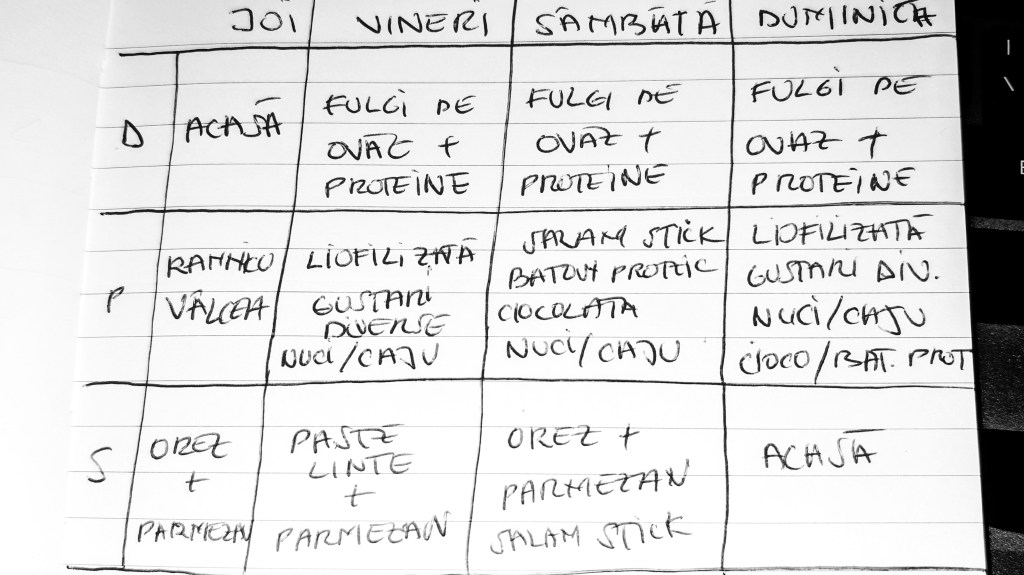 JOI VINERI SÂMBĂTĂ DUMINICĂ
D
ACASĂ
FULGI DE
OVĂZ +
PROTEINE
FULGI DE
OVĂZ +
PROTEINE
FULGI DE
OVĂZ +
PROTEINE
P
RAMNICU
VÂLCEA
LIOFILIZATĂ
GUSTARI
DIVERSE
NUCI/CAJU
SALAM STICK
BATON PROTEIC
CIOCOLATA
NUCI/CAJU
LIOFILIZATĂ
GUSTARI DIV.
NUCI/CAJU
CIOCO/BAT. PROT
S
OREZ
+
PARMEZAN
PASTE
LINTE
+
PARMEZAN
OREZ +
PARMEZAN
SALAM STICK
ACASĂ